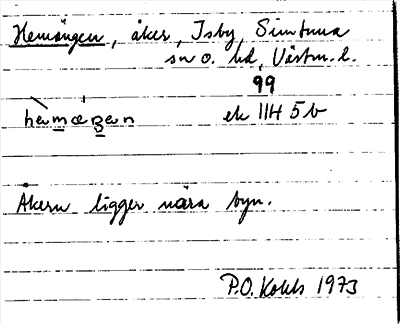 Hemängen, åker, Isby, Simtuna
sn o. hd, Västm. l.
99
hèmæŋen ek 11H 5b
Åkern ligger nära byn.
P.O. 1973